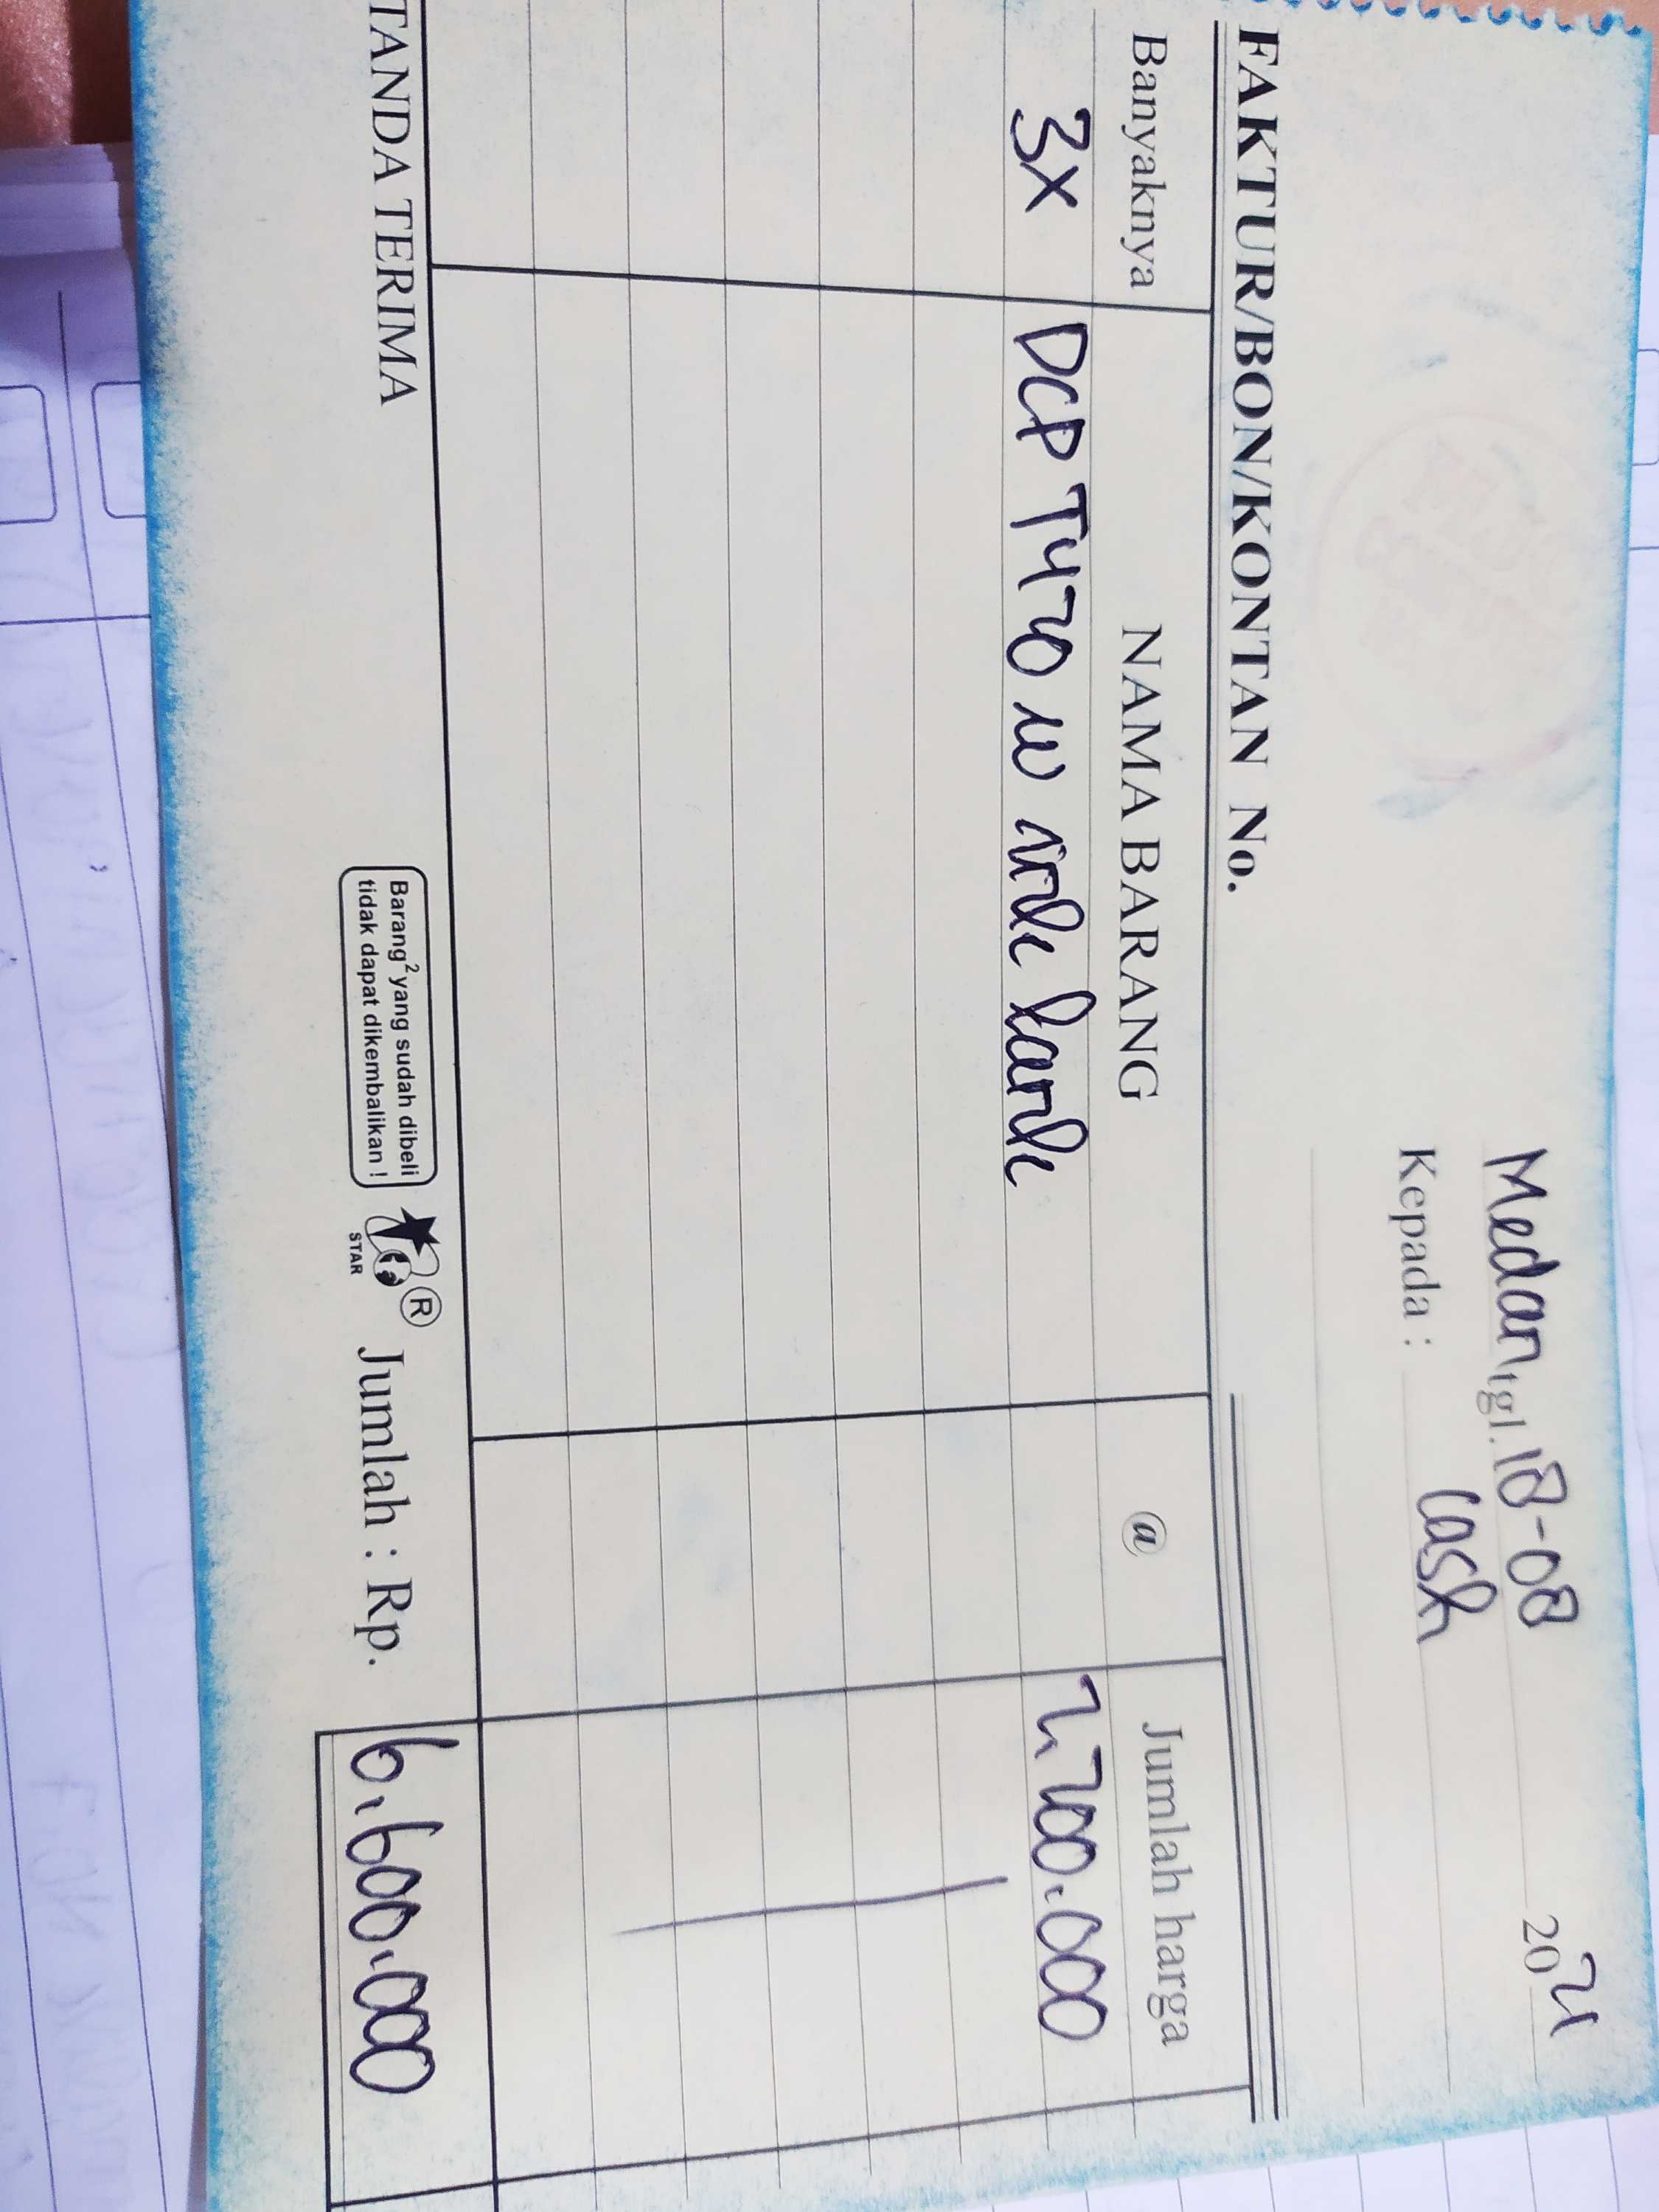 Medan, tgl. 18-08 2024
Kepada : Cash
FAKTUR/BON/KONTAN No.
Banyaknya NAMA BARANG @ Jumlah harga
3x DCP T470 W ink tank 2.200.000
TANDA TERIMA
Barang² yang sudah dibeli
tidak dapat dikembalikan !
STAR
®
Jumlah : Rp. 6.600.000